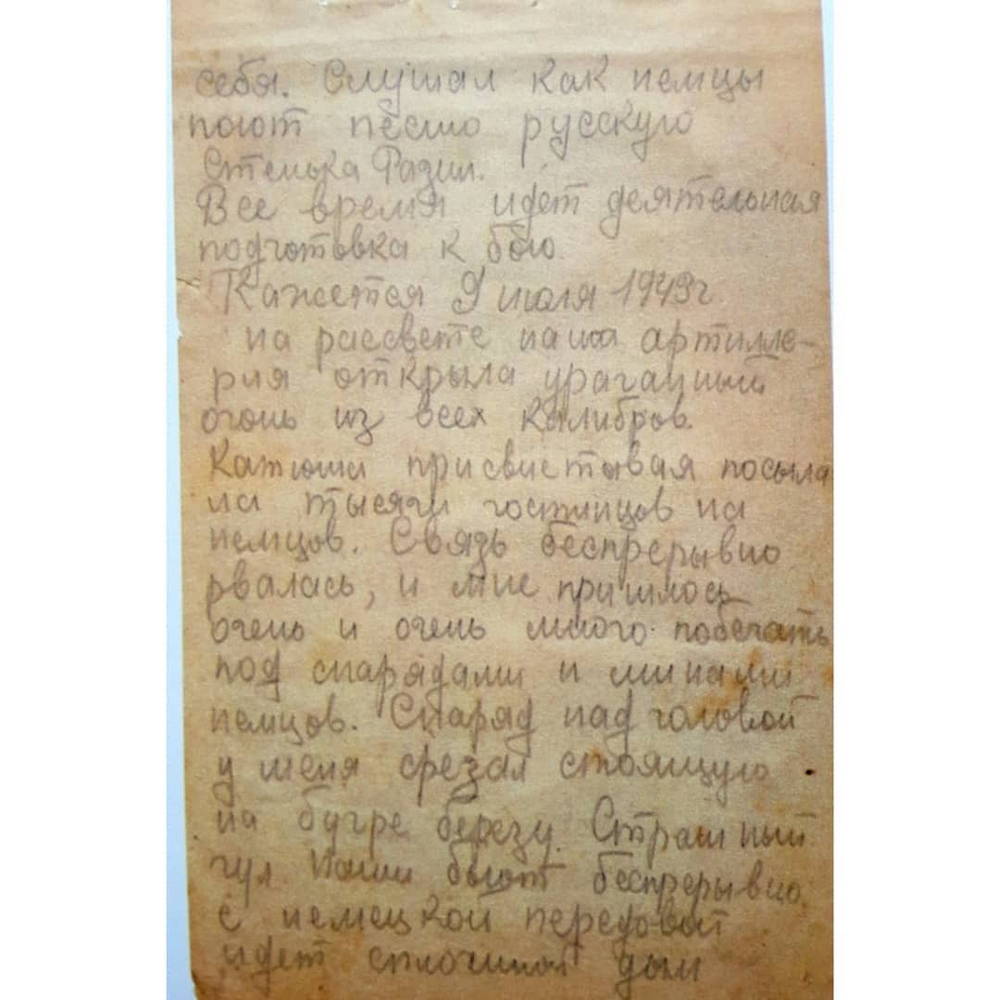 себя. Слушал как немцы
поют песню русскую
Стенька Разин.
Все время идет деятельная
подготовка к бою.
Кажется 9 июля 1943г
на рассвете наша артилле-
рия открыла ураганный
огонь из всех калибров.
Катюши присвистывая посыла
ли тысячи гостинцов на
немцов. Связь беспрерывно
рвалась, и мне пришлось
очень и очень много побегать
под снарядами и минами
немцов. Снаряд над головой
у меня срезал стоящую
на бугре березу. Страшный
гул. Наши бьют беспрерывно
с немецкой передовой
идет сплошной дым